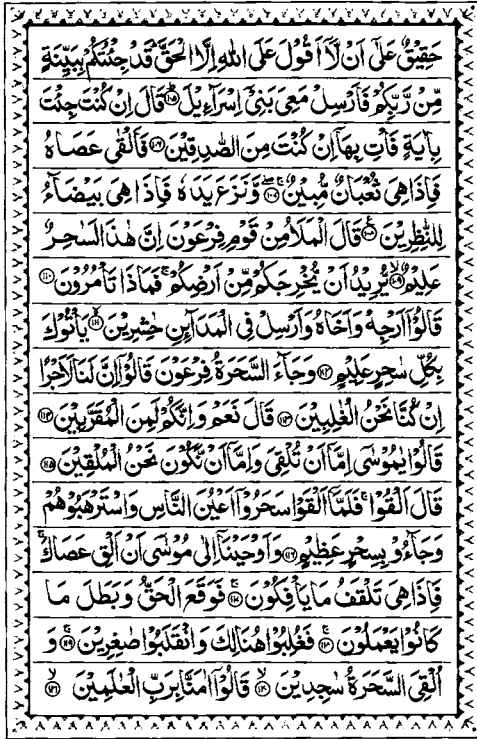 حَقِيْقٌ عَلٰٓى اَنْ لَّاۤ اَقُوْلَ عَلَى اللّٰهِ اِلَّا الْحَقَّ ؕ قَدْ جِئْتُكُمْ بِبَيِّنَةٍ
مِّنْ رَّبِّكُمْ فَاَرْسِلْ مَعِىَ بَنِىْۤ اِسْرَآءِيْلَ ؕ﴿۱۰۵﴾ قَالَ اِنْ كُنْتَ جِئْتَ
بِاٰيَةٍ فَاْتِ بِهَاۤ اِنْ كُنْتَ مِنَ الصّٰدِقِيْنَ ﴿۱۰۶﴾ فَاَلْقٰى عَصَاهُ
فَاِذَا هِىَ ثُعْبَانٌ مُّبِيْنٌ ۚۖ﴿۱۰۷﴾ وَّنَزَعَ يَدَهٗ فَاِذَا هِىَ بَيْضَآءُ
لِلنّٰظِرِيْنَ ﴿۱۰۸﴾ قَالَ الْمَلَاُ مِنْ قَوْمِ فِرْعَوْنَ اِنَّ هٰذَا لَسٰحِرٌ
عَلِيْمٌ ۙ﴿۱۰۹﴾ يُّرِيْدُ اَنْ يُّخْرِجَكُمْ مِّنْ اَرْضِكُمْ ۚ فَمَاذَا تَاْمُرُوْنَ ﴿۱۱۰﴾
قَالُوْۤا اَرْجِهْ وَاَخَاهُ وَاَرْسِلْ فِى الْمَدَآئِنِ حٰشِرِيْنَ ۙ﴿۱۱۱﴾ يَاْتُوْكَ
بِكُلِّ سٰحِرٍ عَلِيْمٍ ﴿۱۱۲﴾ وَجَآءَ السَّحَرَةُ فِرْعَوْنَ قَالُوْۤا اِنَّ لَنَا لَاَجْرًا
اِنْ كُنَّا نَحْنُ الْغٰلِبِيْنَ ﴿۱۱۳﴾ قَالَ نَعَمْ وَاِنَّكُمْ لَمِنَ الْمُقَرَّبِيْنَ ﴿۱۱۴﴾
قَالُوْا يٰمُوْسٰٓى اِمَّاۤ اَنْ تُلْقِىَ وَاِمَّاۤ اَنْ نَّكُوْنَ نَحْنُ الْمُلْقِيْنَ ﴿۱۱۵﴾
قَالَ اَلْقُوْا ۚ فَلَمَّاۤ اَلْقَوْا سَحَرُوْۤا اَعْيُنَ النَّاسِ وَاسْتَرْهَبُوْهُمْ
وَجَآءُوْ بِسِحْرٍ عَظِيْمٍ ﴿۱۱۶﴾ وَاَوْحَيْنَاۤ اِلٰى مُوْسٰٓى اَنْ اَلْقِ عَصَاكَ ۚ
فَاِذَا هِىَ تَلْقَفُ مَا يَاْفِكُوْنَ ۚ﴿۱۱۷﴾ فَوَقَعَ الْحَقُّ وَبَطَلَ مَا
كَانُوْا يَعْمَلُوْنَ ۚ﴿۱۱۸﴾ فَغُلِبُوْا هُنَالِكَ وَانْقَلَبُوْا صٰغِرِيْنَ ۚ﴿۱۱۹﴾ وَ
اُلْقِىَ السَّحَرَةُ سٰجِدِيْنَ ۙ﴿۱۲۰﴾ قَالُوْۤا اٰمَنَّا بِرَبِّ الْعٰلَمِيْنَ ۙ﴿۱۲۱﴾